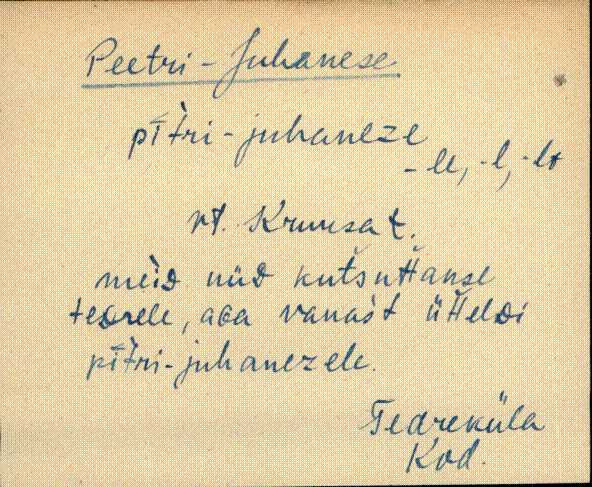 Peetri-Juhanese
pītri-juhaneze
-le, -l, -lt
vt. Kruusa t.
meìᴅ nüᴅ kutšuttanse
teᴅrele, aʙa vanašt üttelᴅi
pītri-juhanezele.
Tedreküla
Kod.